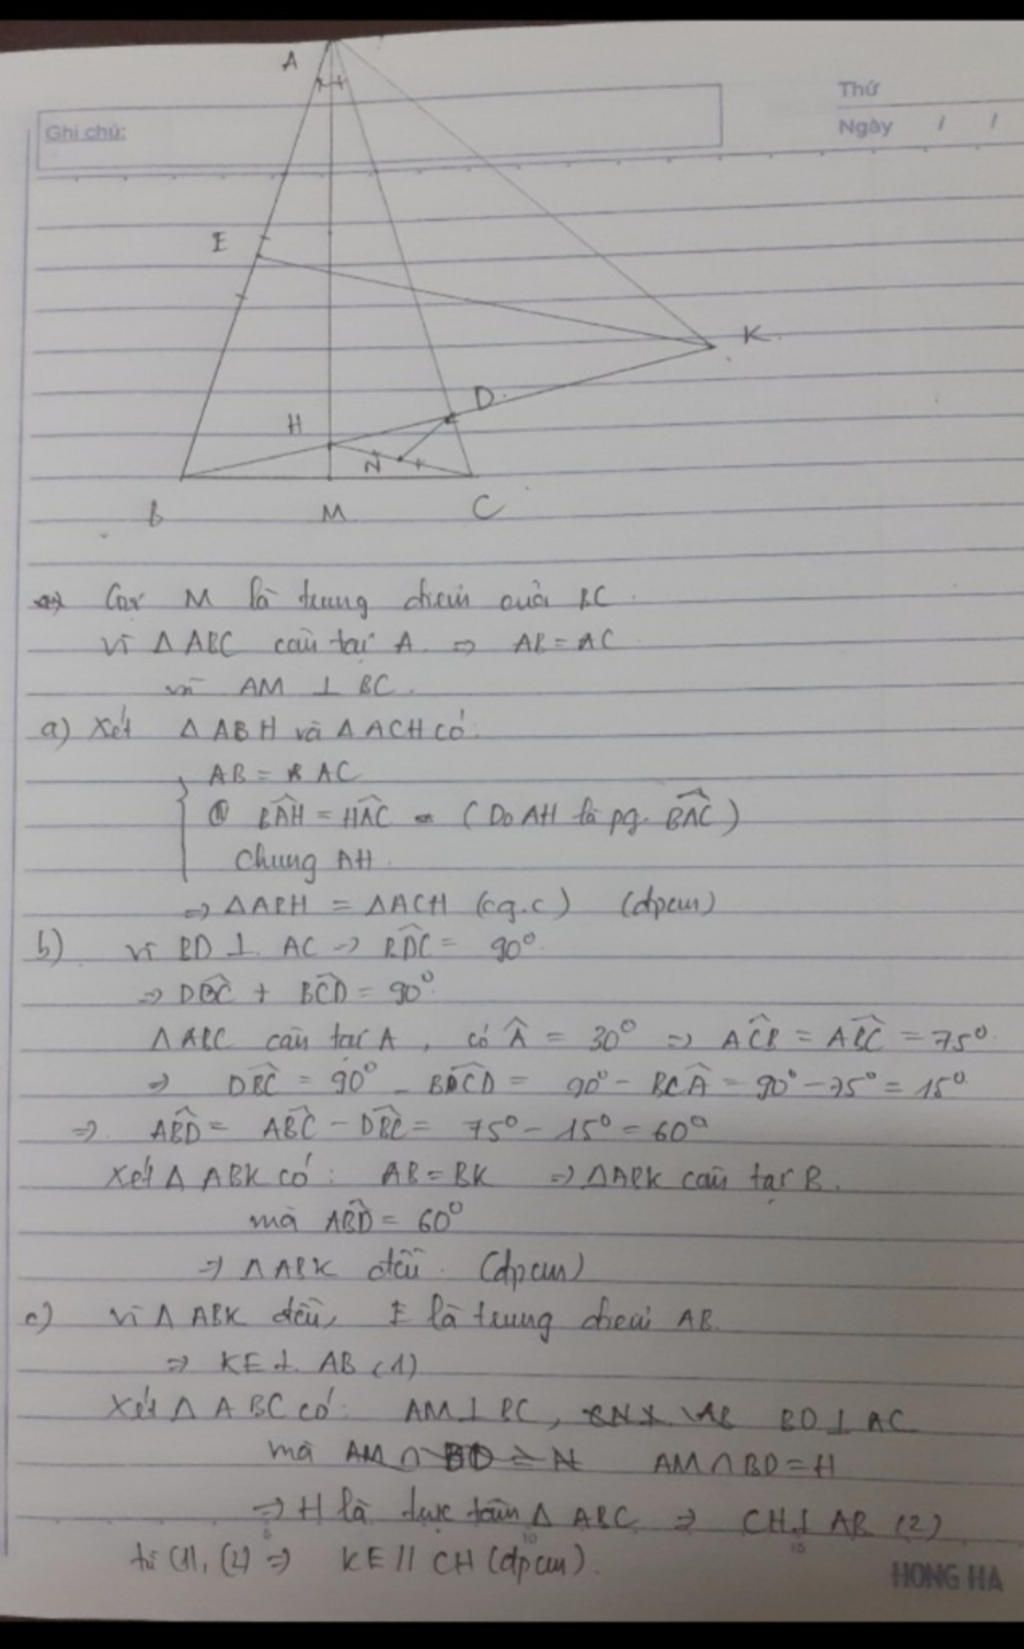 A
Thứ
Ghi chú:
Ngày / /
E
K
D
H
N
B
M
C
Gọi M là trung điểm của BC
Vì Δ ABC cân tại A ⇒ AB = AC
và AM ⊥ BC.
a) Xét Δ ABH và Δ ACH có:
AB = AC
BAH = HAC (Do AH là pg BAC)
Chung AH
⇒ ΔABH = ΔACH (c.g.c) (đpcm)
b) Vì BD ⊥ AC ⇒ BDC = 90°
⇒ DBC + BCD = 90°
Δ ABC cân tại A, có A = 30° ⇒ ACB = ABC = 75°
⇒ DBC = 90° - BCD = 90° - BCA = 90° - 75° = 15°
⇒ ABD = ABC - DBC = 75° - 15° = 60°
Xét Δ ABK có: AB = BK ⇒ ΔABK cân tại B.
mà ABD = 60°
⇒ ΔABK đều (đpcm)
c) Vì Δ ABK đều, E là trung điểm AB.
⇒ KE ⊥ AB (1)
Xét Δ ABC có: AM ⊥ BC, BD ⊥ AC
mà AM ∩ BD = H
⇒ H là trực tâm Δ ABC ⇒ CH ⊥ AB (2)
từ (1), (2) ⇒ KE // CH (đpcm).
5 10 15
HONG HA